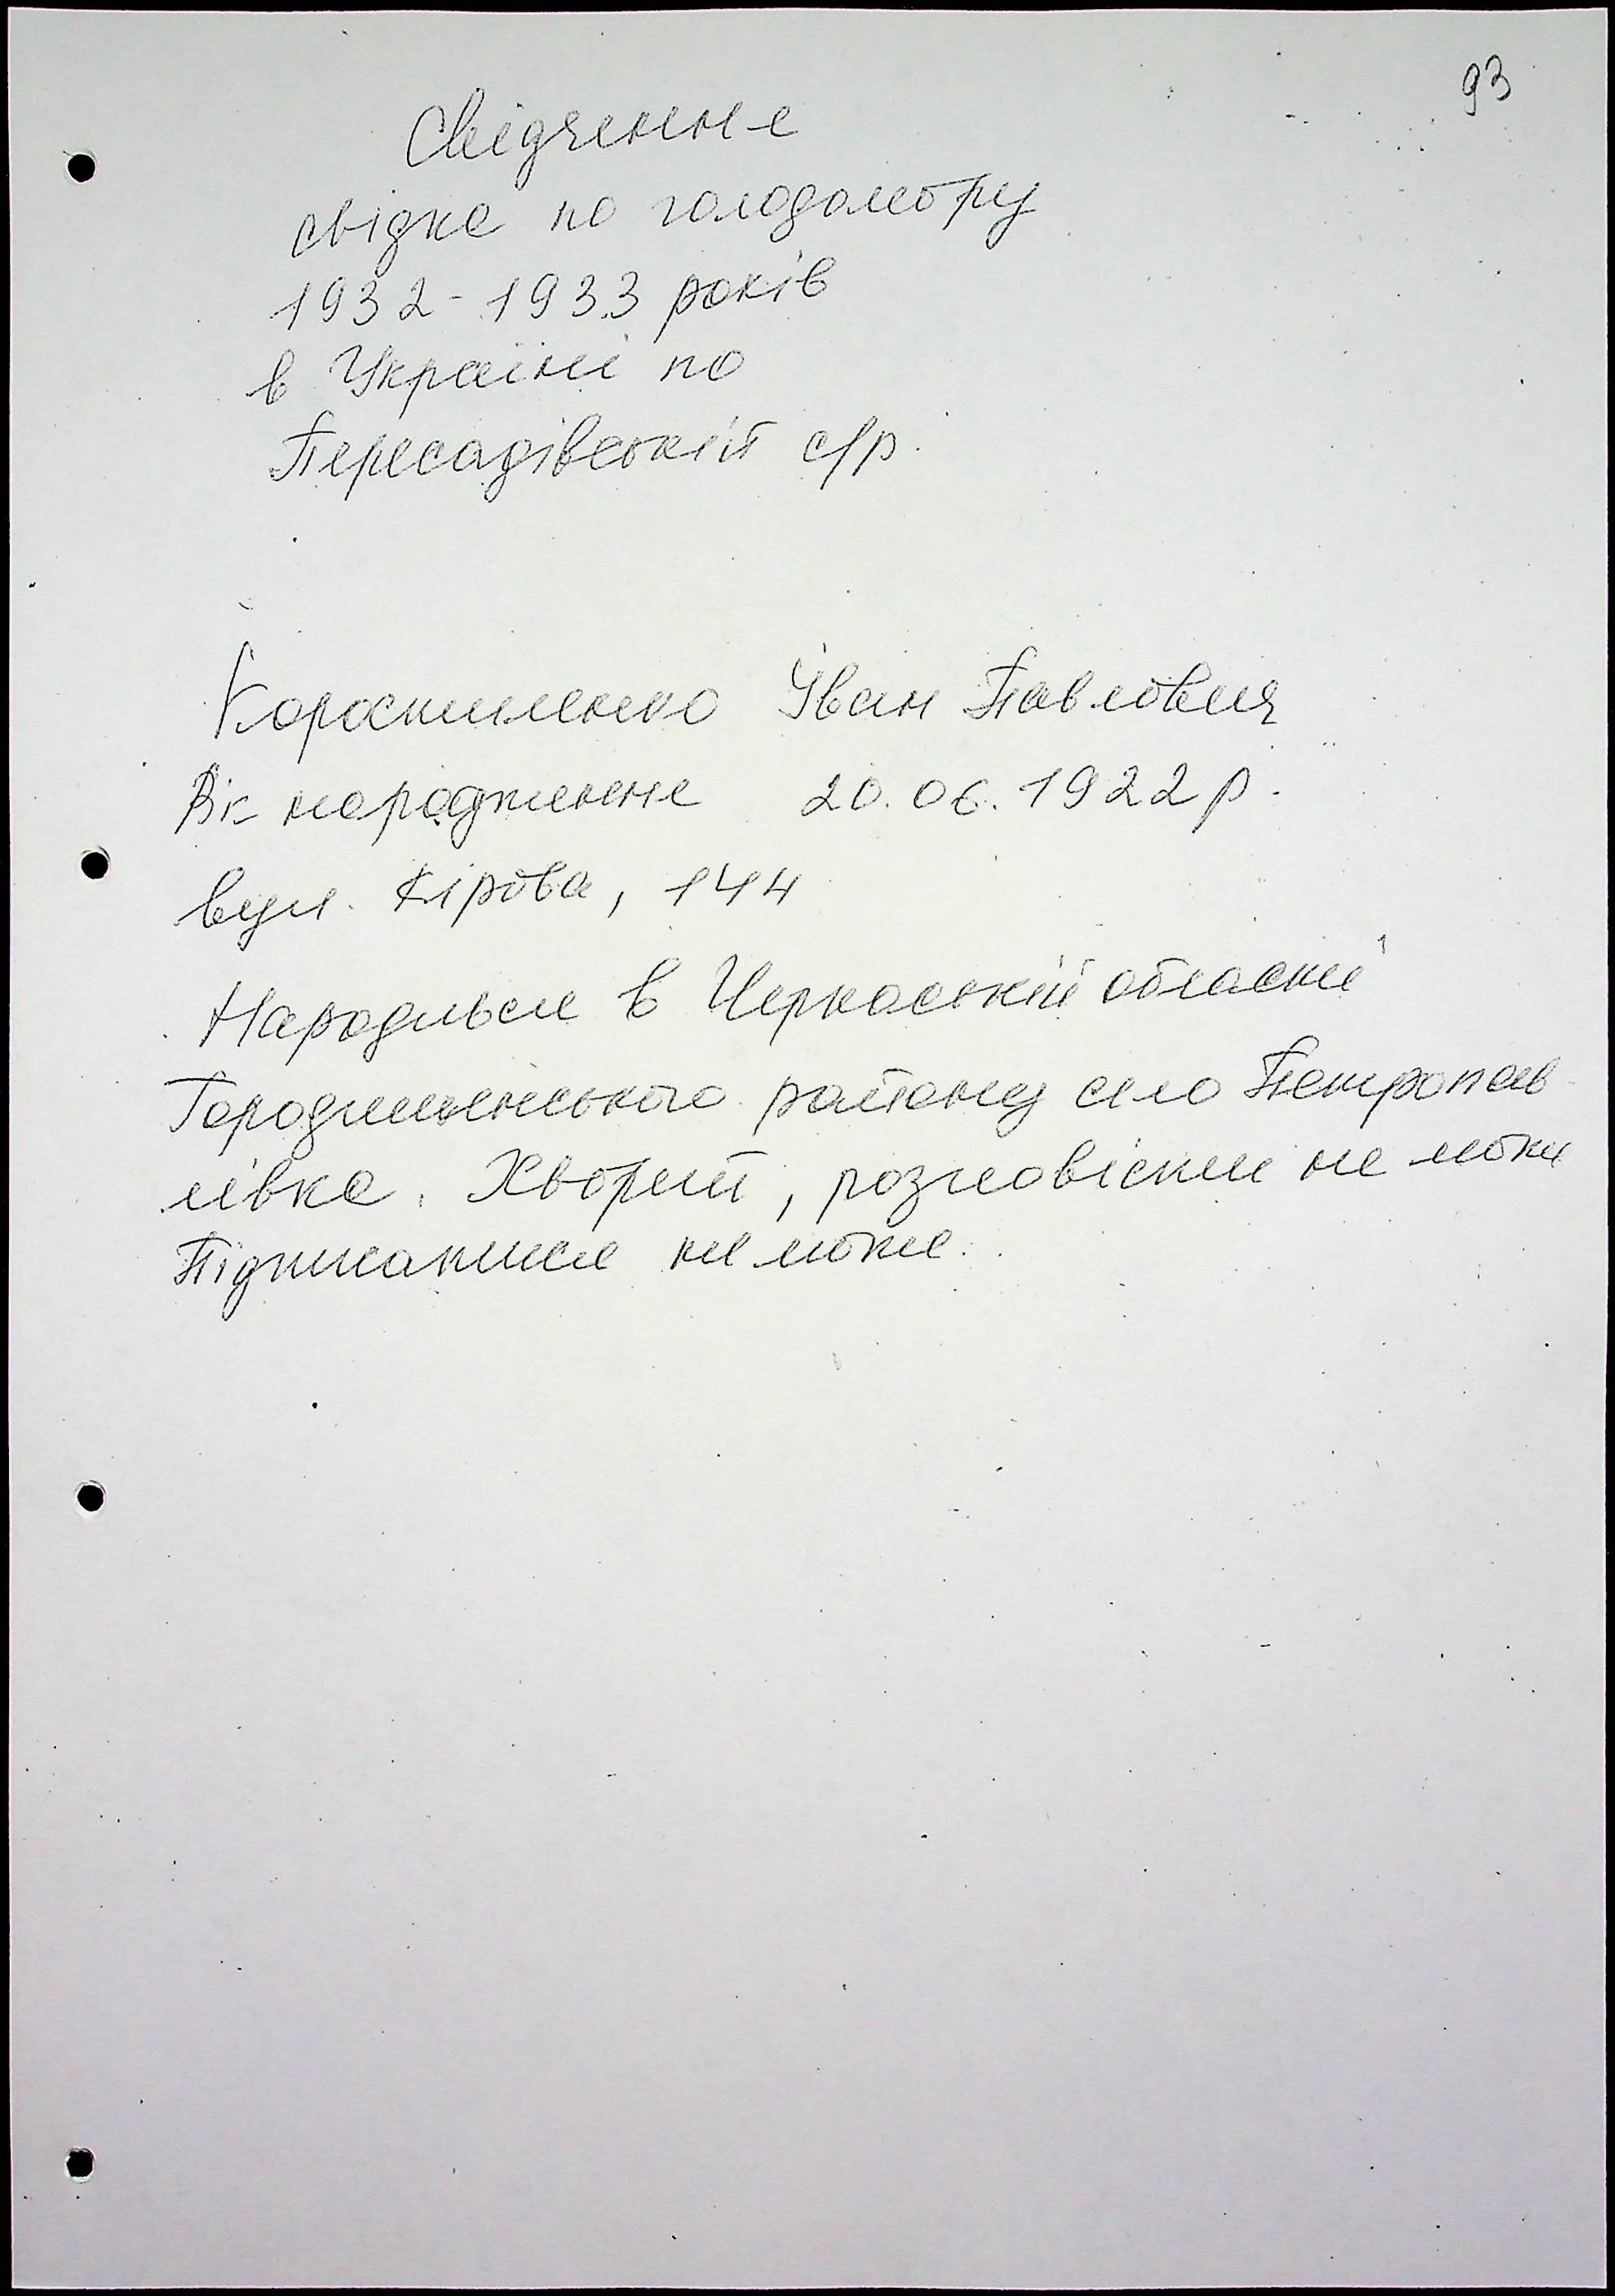 93
Свідчення
свідка по голодомору
1932-1933 років
в Україні по
Пересадівській с/р.
Коростиленко Іван Павлович
Рік народження 20.06.1922 р.
вул. Кірова, 144
Народився в Черкаській області
Городищенського району село Петропав
лівка. Хворий, розповісти не може
Підписатися не може.